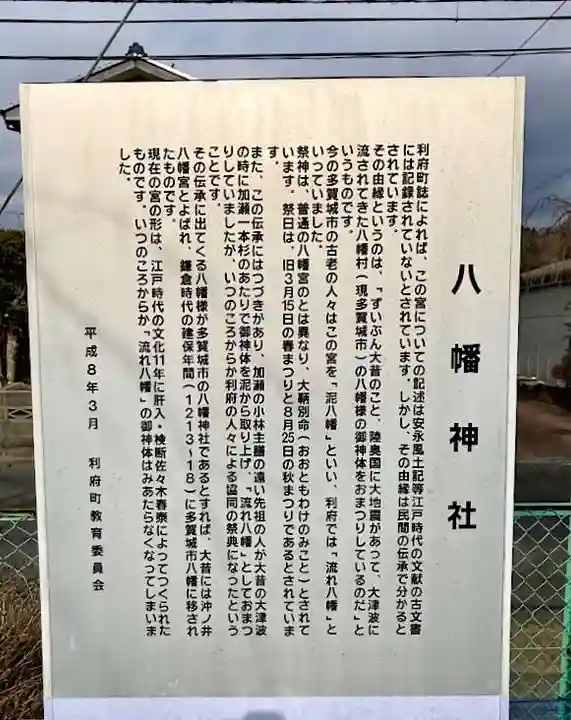 八幡神社
利府町誌によれば、この宮についての記述は安永風土記等江戸時代の文献の古文書
には記録されていないとされています。しかし、その由縁は民間の伝承で分かると
されています。
その由縁というのは、「ずいぶん大昔のこと、陸奥国に大地震があって、大津波に
流されてきた八幡村（現多賀城市）の八幡様の御神体をおまつりしているのだ」と
いうものです。
今の多賀城市の古老の人々はこの宮を「泥八幡」といい、利府では「流れ八幡」と
いっていました。
祭神は、普通の八幡宮のとは異なり、大鞆別命（おおともわけのみこと）とされて
います。祭日は、旧3月15日の春まつりと8月25日の秋まつりであるとされていま
す。
また、この伝承にはつづきがあり、加瀬の小林主膳の遠い先祖の人が大昔の大津波
の時に加瀬一本杉のあたりで御神体を泥から取り上げ、「流れ八幡」としておまつ
りしていましたが、いつのころからか利府の人々による協同の祭典になったという
ことです。
その伝承に出てくる八幡様が多賀城市の八幡神社であるとすれば、大昔には沖ノ井
八幡宮とよばれ、鎌倉時代の建保年間（1213～18）に多賀城市八幡に移され
たものです。
現在の宮の形は、江戸時代の文化11年に肝入・検断佐々木春泰によってつくられた
ものです。いつのころからか、「流れ八幡」の御神体はみあたらなくなってしまいま
した。
平成8年3月　利府町教育委員会